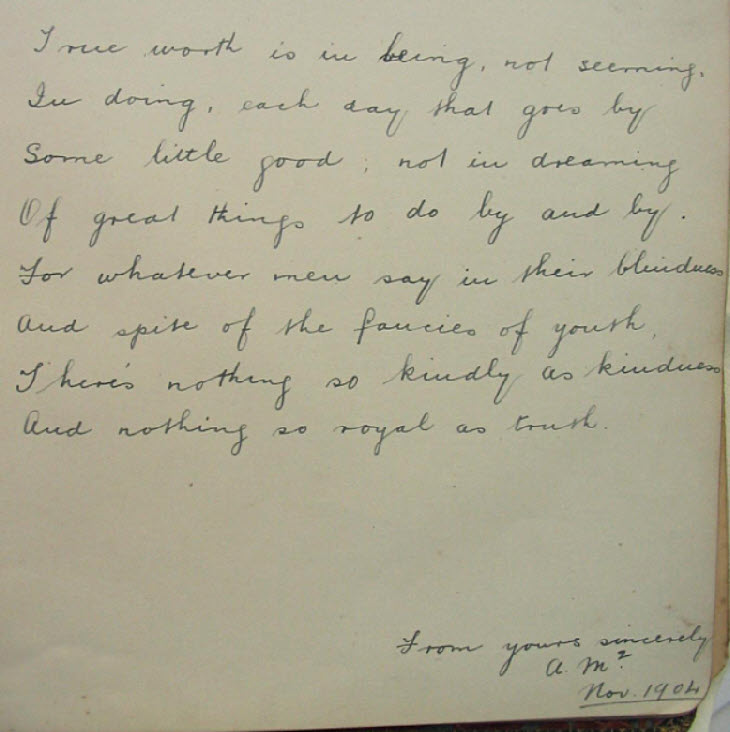 True worth is in being, not seeming,
In doing, each day that goes by
Some little good; not in dreaming
Of great things to do by and by.
For whatever men say in their blindness
And spite of the fancies of youth,
There's nothing so kindly as kindness
And nothing so royal as truth.
From yours sincerely
A. M?
Nov. 1904